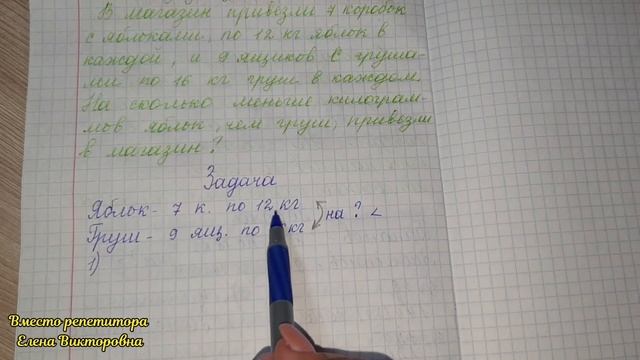 В магазин привезли 7 коробок
с яблоками по 12 кг яблок в
каждой, и 9 ящиков с груша-
ми по 16 кг груш в каждом.
На сколько меньше килограм-
мов яблок, чем груш, привезли
в магазин?
Задача
Яблок - 7 к. по 12 кг
Груш - 9 ящ. по кг
на ? <
1)
Вместо репетитора
Елена Викторовна